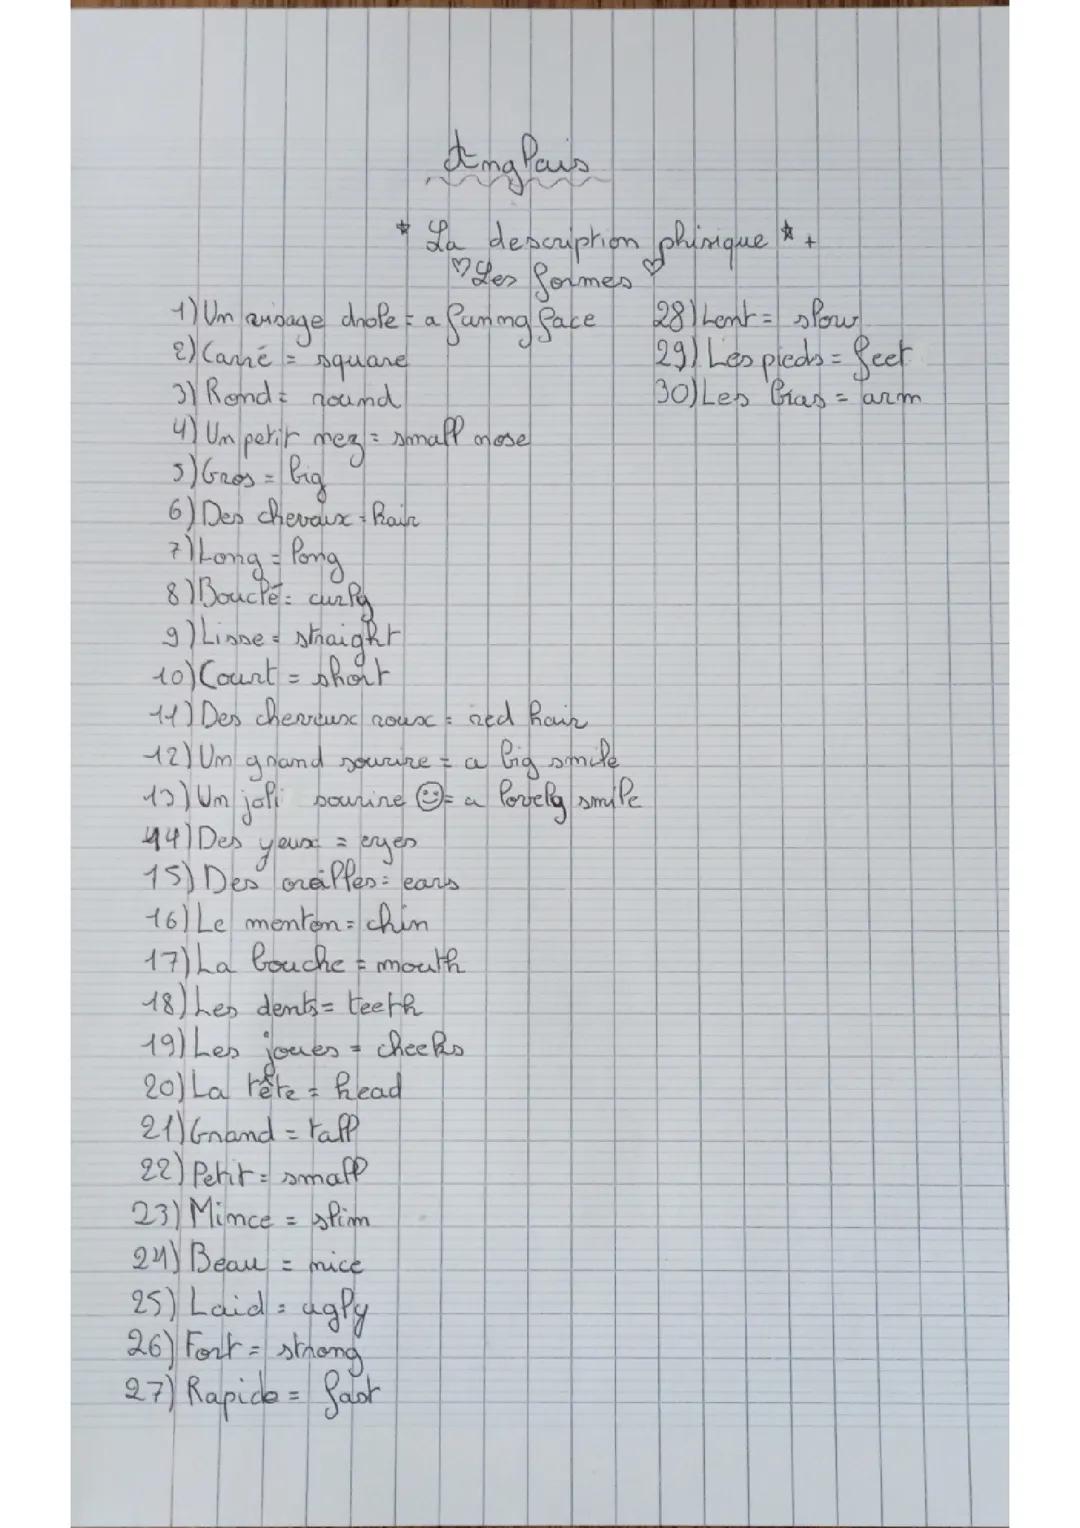 Anglais
* La description phisique * +
♡ Les formes ♡
1) Un visage drole = a funing face
2) Carré = square
3) Rond = round
4) Un petit nez = small nose
5) Gros = big
6) Des chevaux = hair
7) Long = long
8) Bouclé = curly
9) Lisse = straight
10) Court = short
11) Des cheveux roux = red hair
12) Un grand sourire = a big smile
13) Un joli sourire ☺ = a lovely smile
14) Des yeux = eyes
15) Des oreilles = ears
16) Le menton = chin
17) La bouche = mouth
18) Les dents = teeth
19) Les joues = cheeks
20) La tête = head
21) Grand = tall
22) Petit = small
23) Mince = slim
24) Beau = nice
25) Laid = ugly
26) Fort = strong
27) Rapide = fast
28) Lent = slow
29) Les pieds = feet
30) Les bras = arm